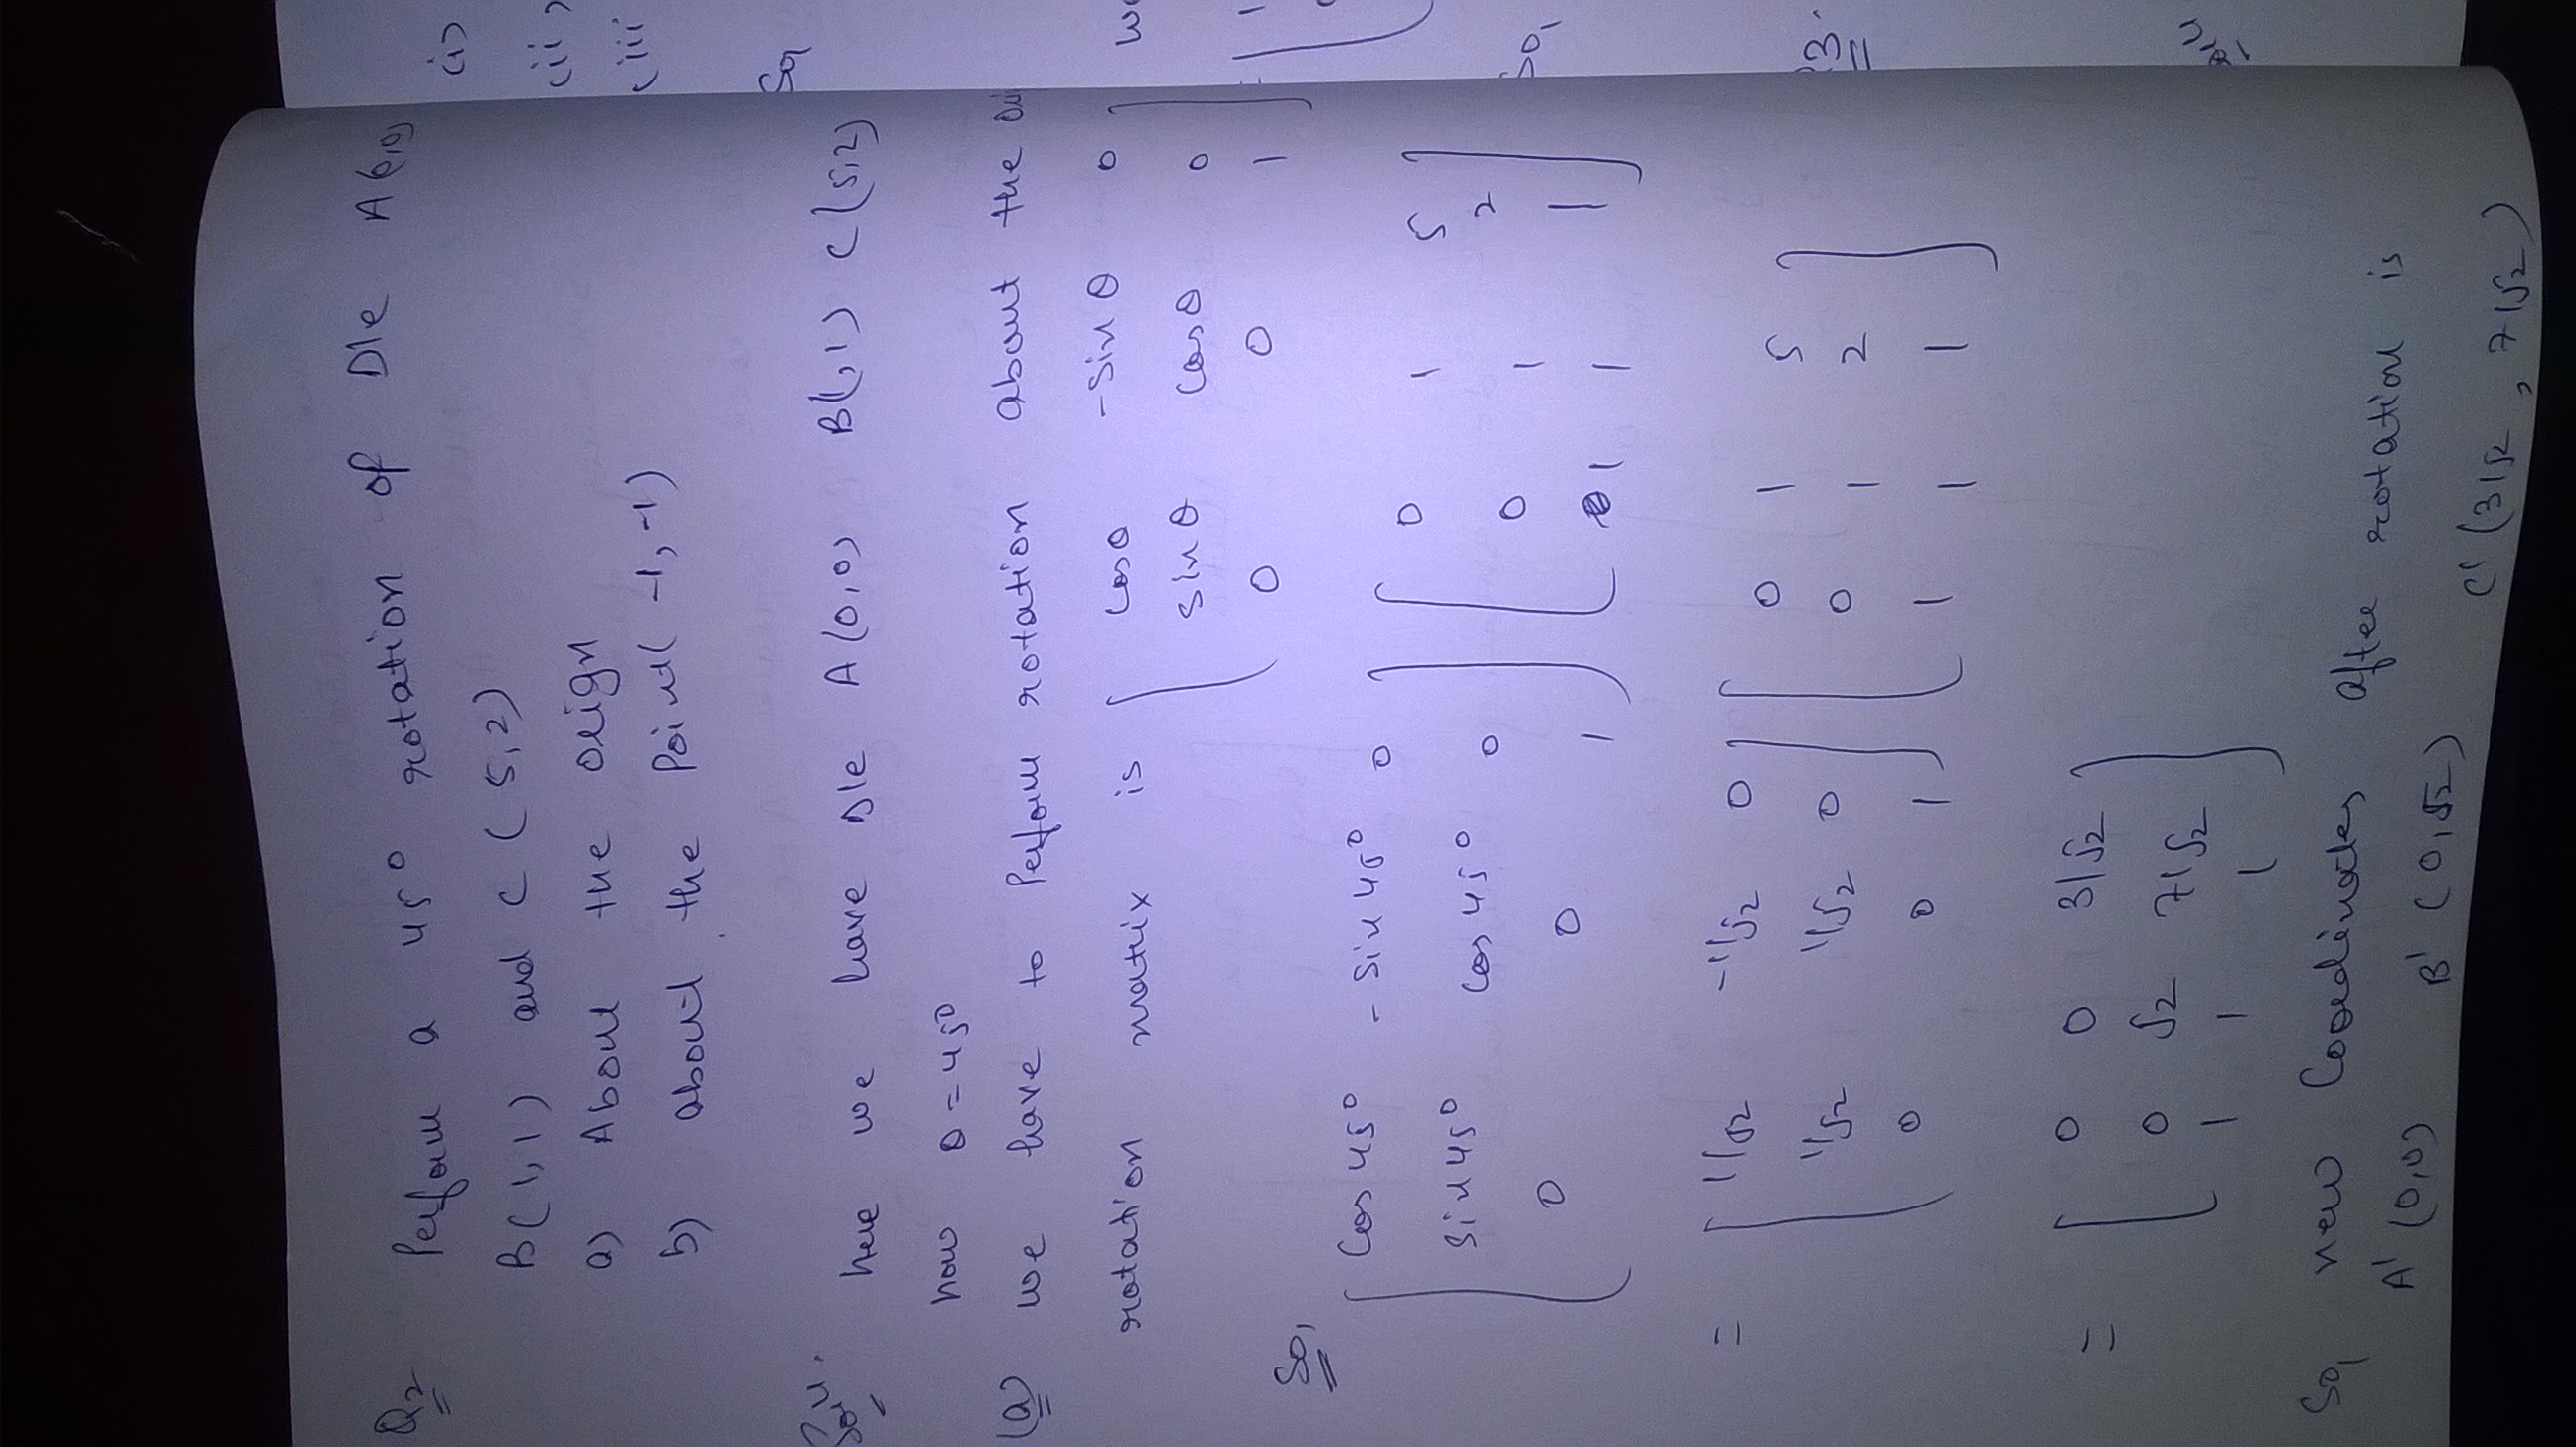 Q2 Perform a 45° rotation of Dle A(0,0)
B(1,1) and C(5,2)
a) About the Orign
b) about the Point(-1,-1)
Soln. here we have Dle A(0,0) B(1,1) C(5,2)
now θ = 45°
(a) we have to Perform rotation about the
rotation matrix is [ cosθ -sinθ 0
sinθ cosθ 0
0 0 1 ]
So, [ cos 45° -sin 45° 0 ] [ 0 1 5 ]
sin 45° cos 45° 0 0 1 2
0 0 1 1 1 1
= [ 1/√2 -1/√2 0 ] [ 0 1 5 ]
1/√2 1/√2 0 0 1 2
0 0 1 1 1 1
= [ 0 0 3/√2 ]
0 √2 7/√2
1 1 1
So, new Coordinates after rotation is
A' (0,0) B' (0,√2) C' (3/√2, 7/√2)
(i)
(ii)
(iii
So,
So,